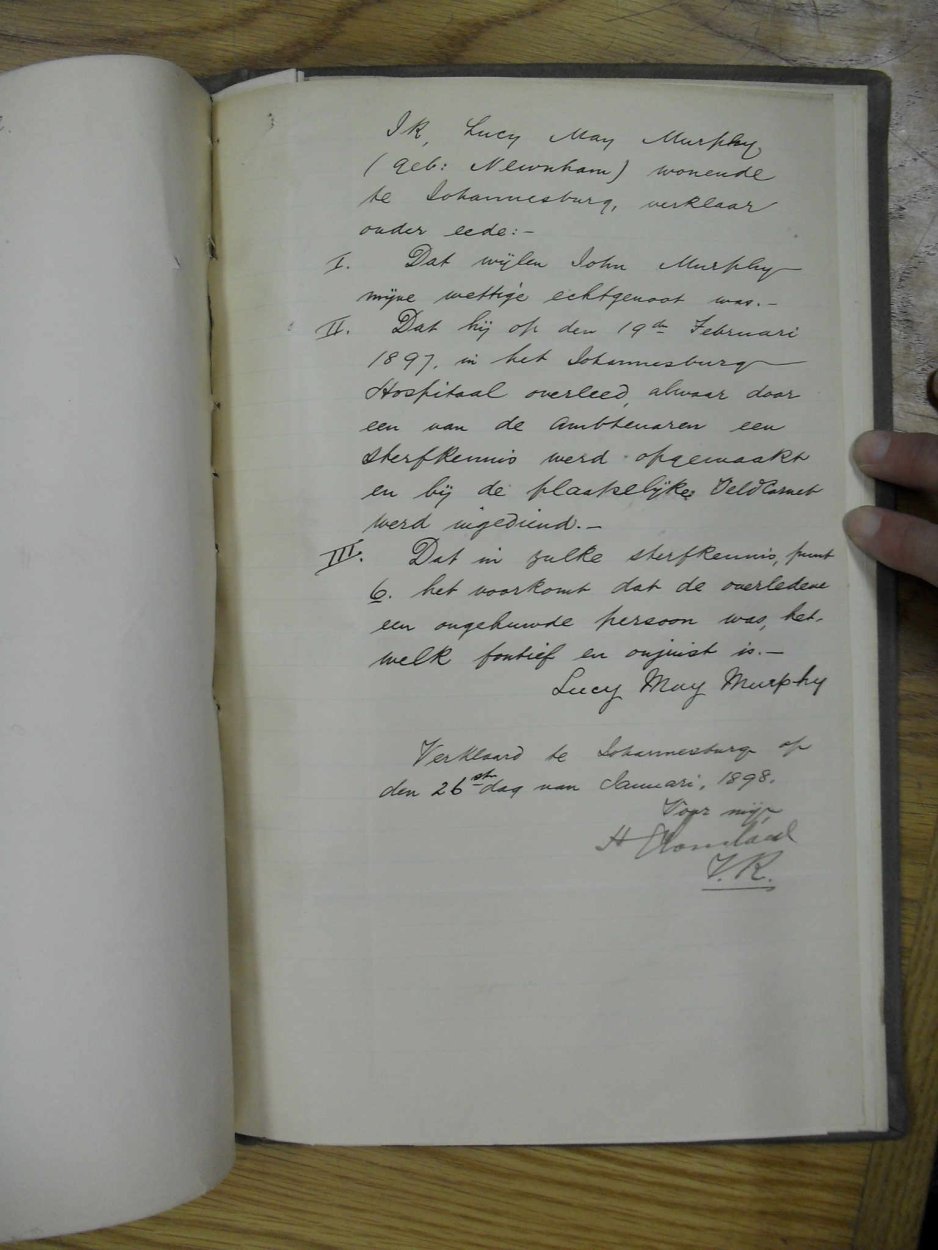 Ik, Lucy May Murphy
(geb: Newnham) wonende
te Johannesburg, verklaar
onder eede:-
I. Dat wijlen John Murphy
mijne wettige echtgenoot was.-
II. Dat hij op den 19de Februari
1897, in het Johannesburg
Hospitaal overleed, alwaar door
een van de ambtenaren een
sterfkennis werd opgemaakt
en bij de plaatselijke VeldCornet
werd ingediend.-
III. Dat in zulke sterfkennis, punt
6. het voorkomt dat de overledene
een ongehuwde persoon was, het-
welk foutief en onjuist is.-
Lucy May Murphy
Verklaard te Johannesburg op
den 26st dag van Januari, 1898.
Voor mij,
H
V.R.